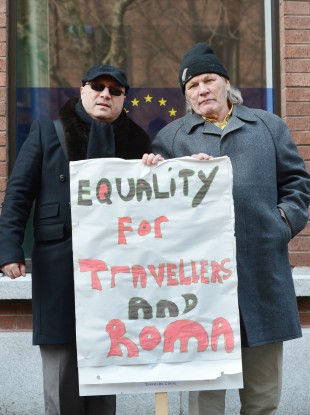 EQUALITY
FOR
TRAVELLERS
AND
ROMA